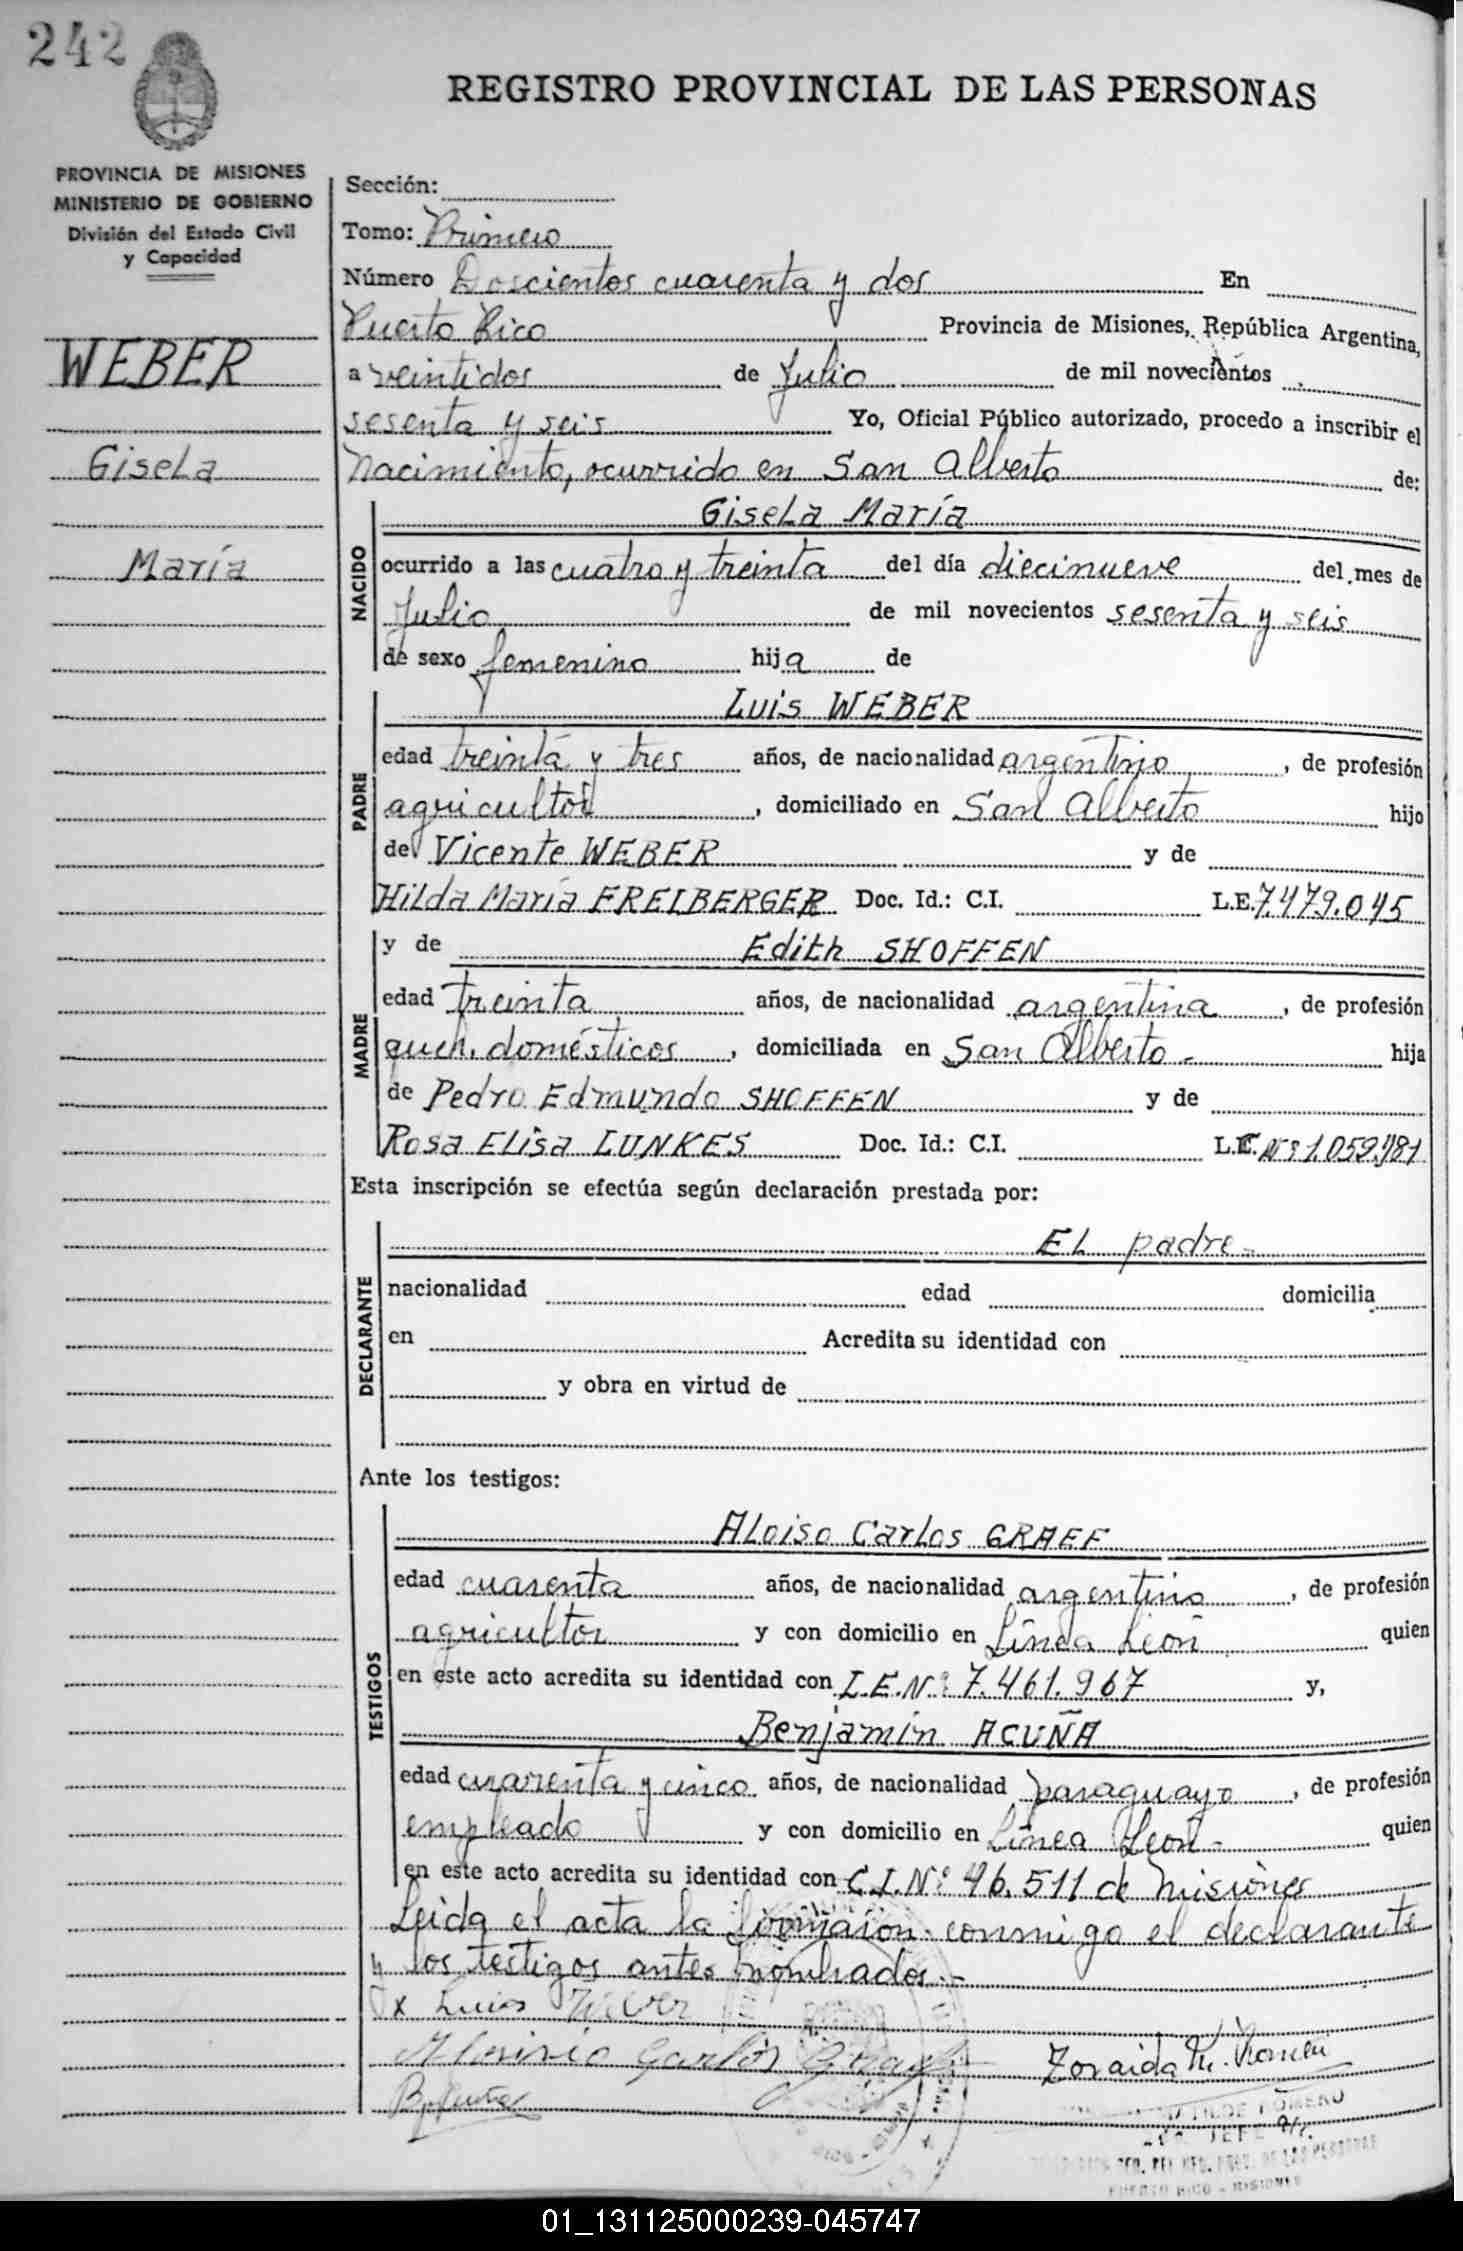 242
REGISTRO PROVINCIAL DE LAS PERSONAS
PROVINCIA DE MISIONES
MINISTERIO DE GOBIERNO
División del Estado Civil
y Capacidad
WEBER
Gisela
María
Sección:
Tomo: Primero
Número Doscientos cuarenta y dos En
Puerto Rico Provincia de Misiones, República Argentina,
a veintidos de Julio de mil novecientos
sesenta y seis Yo, Oficial Público autorizado, procedo a inscribir el
Nacimiento, ocurrido en San Alberto de:
NACIDO
Gisela María
ocurrido a las cuatro y treinta del día diecinueve del mes de
Julio de mil novecientos sesenta y seis
de sexo femenino hija de
PADRE
Luis WEBER
edad treinta y tres años, de nacionalidad argentino, de profesión
agricultor, domiciliado en San Alberto hijo
de Vicente WEBER y de
Hilda María FREIBERGER Doc. Id.: C.I. L.E. 7.479.045
MADRE
y de Edith SHOFFEN
edad treinta años, de nacionalidad argentina, de profesión
queh. domésticos, domiciliada en San Alberto.- hija
de Pedro Edmundo SHOFFEN y de
Rosa Elisa LUNKES Doc. Id.: C.I. L.C. Nº 1.059.981
Esta inscripción se efectúa según declaración prestada por:
DECLARANTE
El padre.-
nacionalidad edad domicilia
en Acredita su identidad con
y obra en virtud de
Ante los testigos:
TESTIGOS
Aloiso Carlos GRAEF
edad cuarenta años, de nacionalidad argentino, de profesión
agricultor y con domicilio en Línea León quien
en este acto acredita su identidad con L.E.Nº: 7.461.967 y,
Benjamín ACUÑA
edad cuarenta y cinco años, de nacionalidad paraguayo, de profesión
empleado y con domicilio en Línea León- quien
en este acto acredita su identidad con C.I.Nº 46.511 de Misiones
Leída el acta la firmaron conmigo el declarante
y los testigos antes nombrados.-
x Luis Weber
Aloisio Carlos Graef Zoraida M. Romero
B Acuña
MATILDE ROMERO
JEFE
REG. PROV. DE LAS PERSONAS
PUERTO RICO - MISIONES
01_131125000239-045747